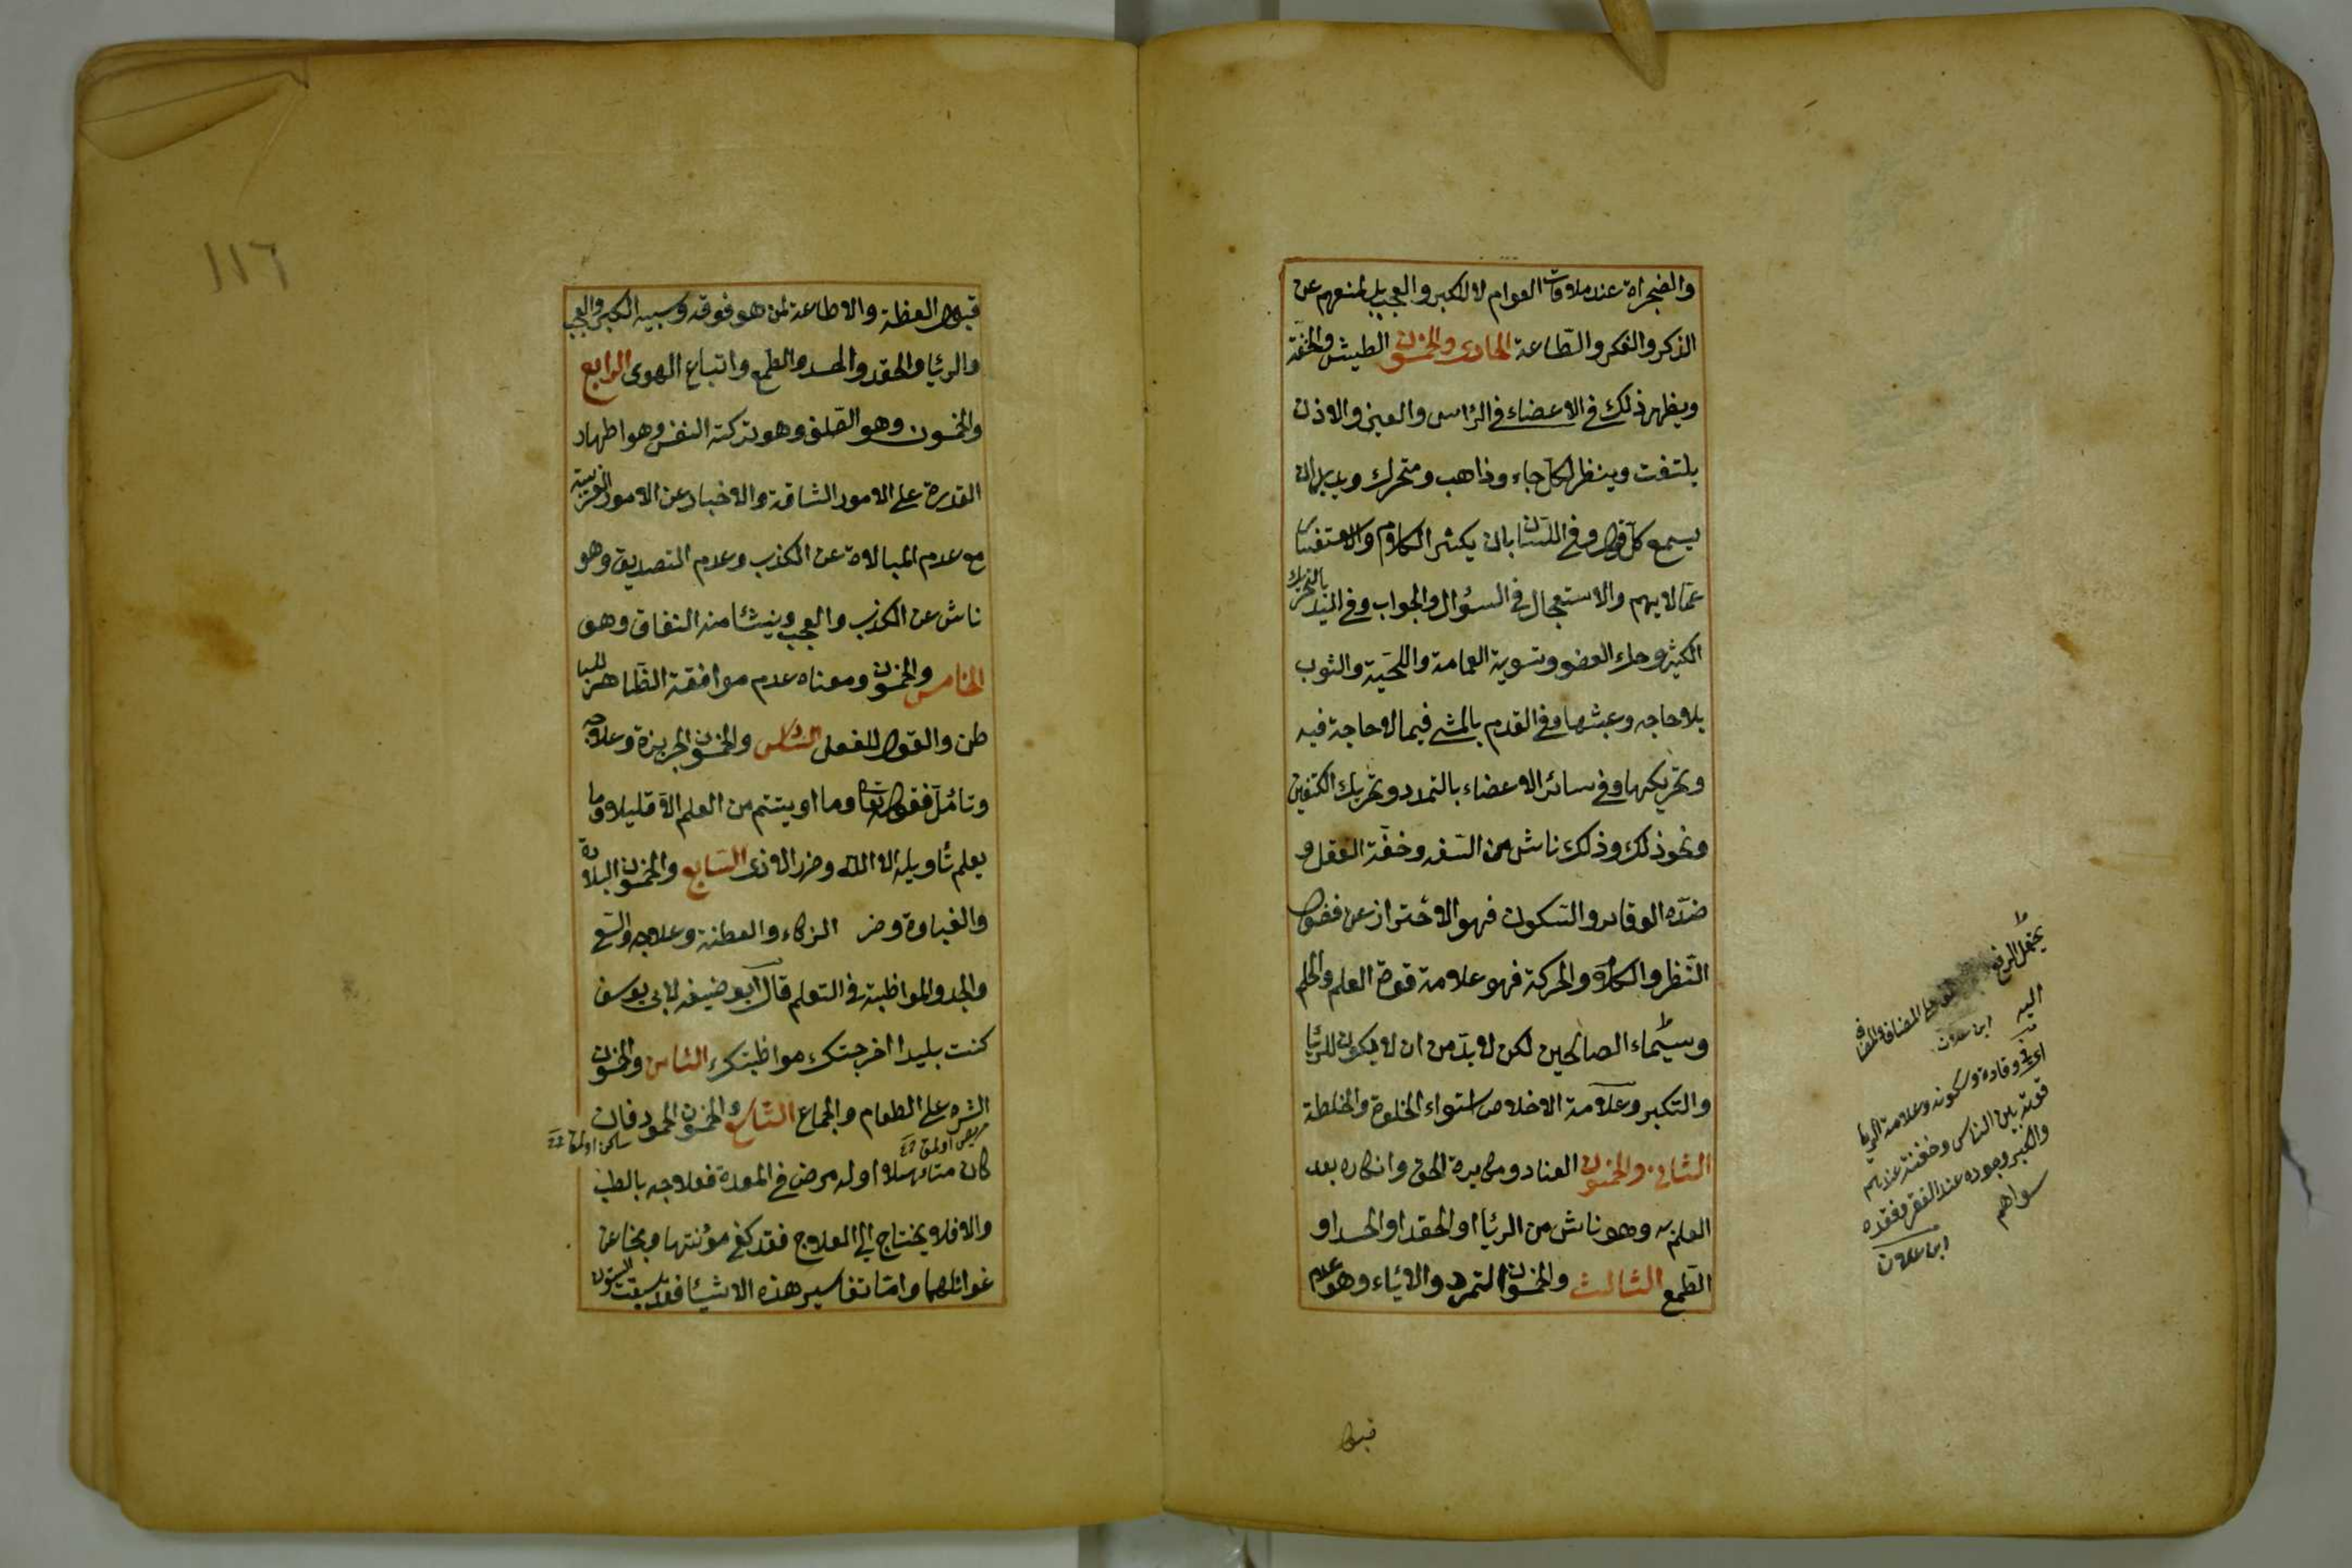 والضجراة عند ملاقات العوام لا للكبر والعجب بل لمنعهم عن
الذكر والفكر والطّاعة الحادى والخمسون الطيش والخفّة
ويظهر ذلك في الاعضاء في الرّاس والعين والاذن
يلتفت وينظر لكلّ جاء وذاهب ومتحرك ويريد ان
يسمع كلّ قول وفي اللسّان بان يكثر الكلام والاستفسار
عمّا لا يهم والاستعجال في السؤال والجواب وفي اليد بالتحريك
الكثير وحك العضو وتسوية العمامة واللحية والثوب
بلا حاجه وعبثها وفي القدم بالمشى فيما لا حاجة فيه
وتحريكها وفي سائر الاعضاء بالتمدد وتحريك الكتفين
ونحو ذلك وذلك ناش من السّفه وخفّة العقل و
ضدّه الوقار والسّكون فهو الاحتراز عن فضول
النّظر والكلام والحركة فهو علامة قوة العلم والحلم
وسيّماء الصالحين لكن لا بدّ من ان لا يكون للريّا
والتكبر وعلامة الاخلاص استواء الخلوة والخلطة
الثانى والخمسون العناد ومكابرة الحق وانكاره بعد
العلم به وهو ناش من الريّا او الحقد او الحسد او
الطّمع الثالث والخمسون التمرد والاباء وهو عدم
قبول
يحتمل الرفع على المضاف والمضاف
اليه ابن علان
اى في وقاره وسكونه وعلامة الريا
قوته بين الناس وخفته عندهم
والكبر وجوده عند الفقر وفقده
سواهم
ابن علان
١١٦
قبول العظة والاطاعة لمن هو فوقه وسببه الكبر والعجب
والريّا والحقد والحسد والطمع واتباع الهوى الرابع
والخمسون وهو الصّلف وهو تزكية النفس وهو اظهار
القدرة على الامور الشاقة والاخبار عن الامور الغريبة
مع عدم المبالاة عن الكذب وعدم التصديق وهو
ناش عن الكذب والعجب وينشأ منه النفاق وهو
الخامس والخمسون ومعناه عدم موافقة الظّاهر للبا
طن والقول للفعل السّادس والخمسون الجربزة وعلاجه
وتأمّل فقوله تعا وما اوتيتم من العلم الّا قليلا وما
يعلم تأويله الا الله وضرر الاذى السّابع والخمسون البلادة
والغباوة وضر الزكاء والفطنة وعلاجه والسّعى
والجد والمواظبة في التعلم قال ابو حنيفه لابى يوسف
كنت بليدا اخرجتك مواظبتك الثامن والخمسون
الشره على الطعام والجماع التّاسع والخمسون الخمود فان
كان متأهلا او له مرض في المعدة فعلاجه بالطب
والا فلا يحتاج الى العلاج فقد كفى مؤنتها ونجا عن
غوائلها وامّا تفاسير هذه الاشيّا فقد سبقت السّتون